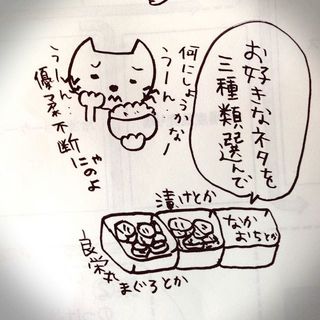 お好きなネタを
三種類選んで
何にしょうかなー
うーん
うーん…
優柔不断にゃのよ
漬けとか
なか
おちとか
良栄丸
まぐろとか